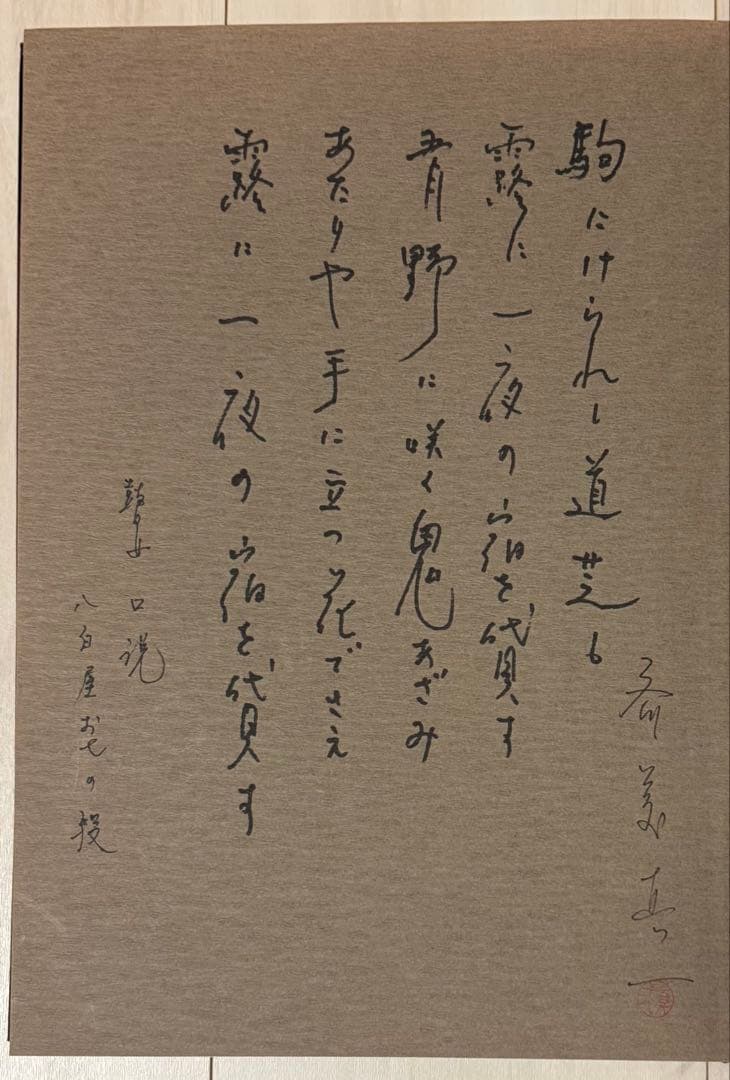 斎藤真一
駒にけられし道芝も
露に一夜の宿を貸す
五月野に咲く鬼あざみ
あたりや手に立つ花でさえ
露に一夜の宿を貸す
瞽女口説
八百屋お七の段